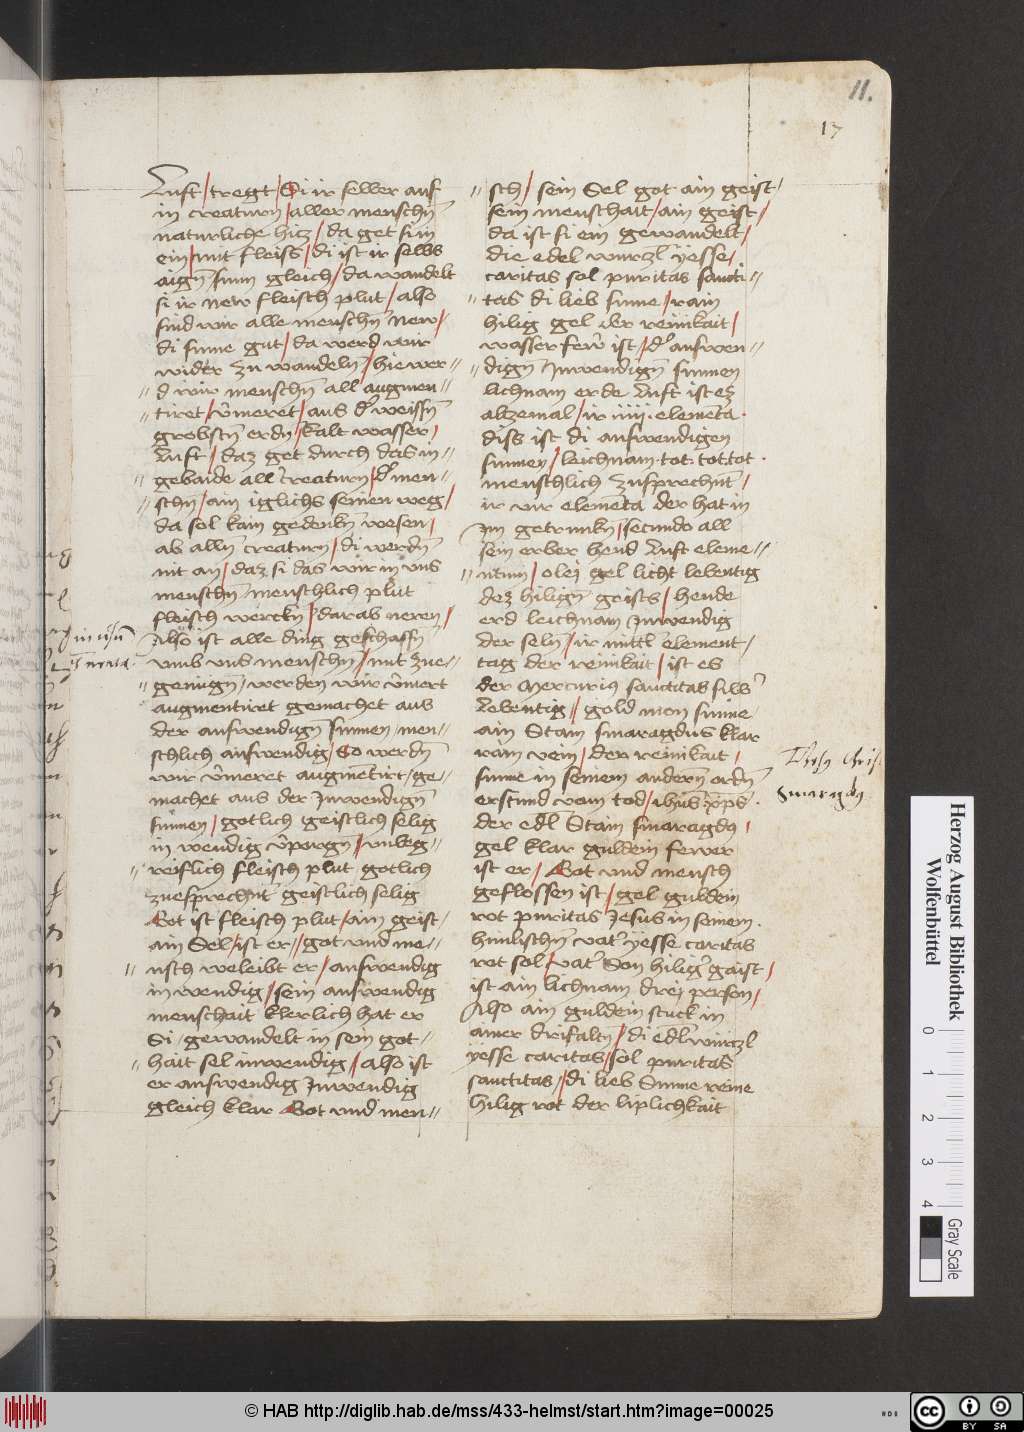 11.
17
Luft / tregt / Si ir selber auf
in creaturn̄ / aller menschn̄
naturliche hitz / da get si in
ein / mit fleiss / di ist ir selbs
aign̄ sinn gleich / da wandelt
si ir new fleisch plut / also
sind wir alle menschn̄ new /
di sinne gut / da werd wir
wider zu wandeln̄ / hie wer=
=d wir menschn̄ all augmen=
=tiret / v̄meret / aus d' weissn̄
grobstn̄ erdn̄ / kalt wasser /
Luft / daz get durch das in=
=gebaide all' creaturn / d' men=
=schn̄ / ain iglichs seinen weg /
da sol kain gedenkn̄ wesen /
ab alln̄ creaturn / di werdn̄
nit an / daz si das wir in vns
menschn̄ menschlich plut
fleisch werckn̄ / darab neren /
Also ist alle ding geschaffn̄
vmb vns menschn̄ / mit zue=
=genugn̄ / werden wir v̄mert
augmentiret gemachet aus
der aufwendign̄ sinnen / men=
schlich aufwendig / So werdn̄
wir v̄meret augmētirt / ge=
machet aus der Inwendign̄
sinnen / gotlich geistlich selig
in wendig v̄porgn̄ / vnbeg=
=reiflich fleisch plut gotlich
zuesprechn̄t geistlich selig
Got ist fleisch plut / ain geist /
ain Sel / ist er = got vnd me=
=nsch weleibt er / aufwendig
in wendig / sein aufwendig
menschait klerlich hat er
Si / gewandelt in sein got=
=hait sel inwendig / also ist
er aufwendig Inwendig
gleich klar Got vnd men=
=sch / sein Sel got ain geist /
sein menschait / ain geist /
da ist si ein gewandelt /
die edel wurczl yesse /
caritas sol puritas sancti=
=tas di lieb sunne / rain
hilig gel der reinikait /
wasser fewr ist / d' aufwen=
=dign̄ Inwendign̄ sinnen
lichnam erde Luft ist ez
alzemal / ir iiij. elemēta.
diss ist di aufwendigen
sinnen / leichnam. tot. tot. tot.
menschlich zusprechn̄t /
ir vir elemēta der hat in
Im getrunkn̄ / secundo all
sein erber hend Luft eleme=
=ntum / olej gel licht lebentig
dez hilign̄ geists / hende
erd leichnam Inwendig
der seln̄ / ir mittl element /
tag der reinikait / ist es
der Mercurius sanctitas silb'
Lebentig / gold men sunne
ain Stain smaragdus klar
rain vein / der reinikait /
sunne in seinem andern̄ ordn̄
erstund vom tod / ihūs xp̄s.
der edl Stain smaragdꝰ /
gel klar guldein fewer
ist er / Got vnd mensch
geflossen ist / gel guldein
rot puritas Jesus in seinem.
himlischn̄ vat' yesse caritas
rot sol / vat' Son hilig' gaist /
ist ain lichnam drej person /
Also ain guldein stuck in
ainer drifaltn̄ / di edl' wurczl
yesse caritas / sol puritas
sanctitas / di lieb Sunne reine
hilig rot der liplichkait
Smaragdꝰ
Herzog August Bibliothek
Wolfenbüttel
0 1 2 3 4
Gray Scale
© HAB http://diglib.hab.de/mss/433-helmst/start.htm?image=00025
CC BY SA